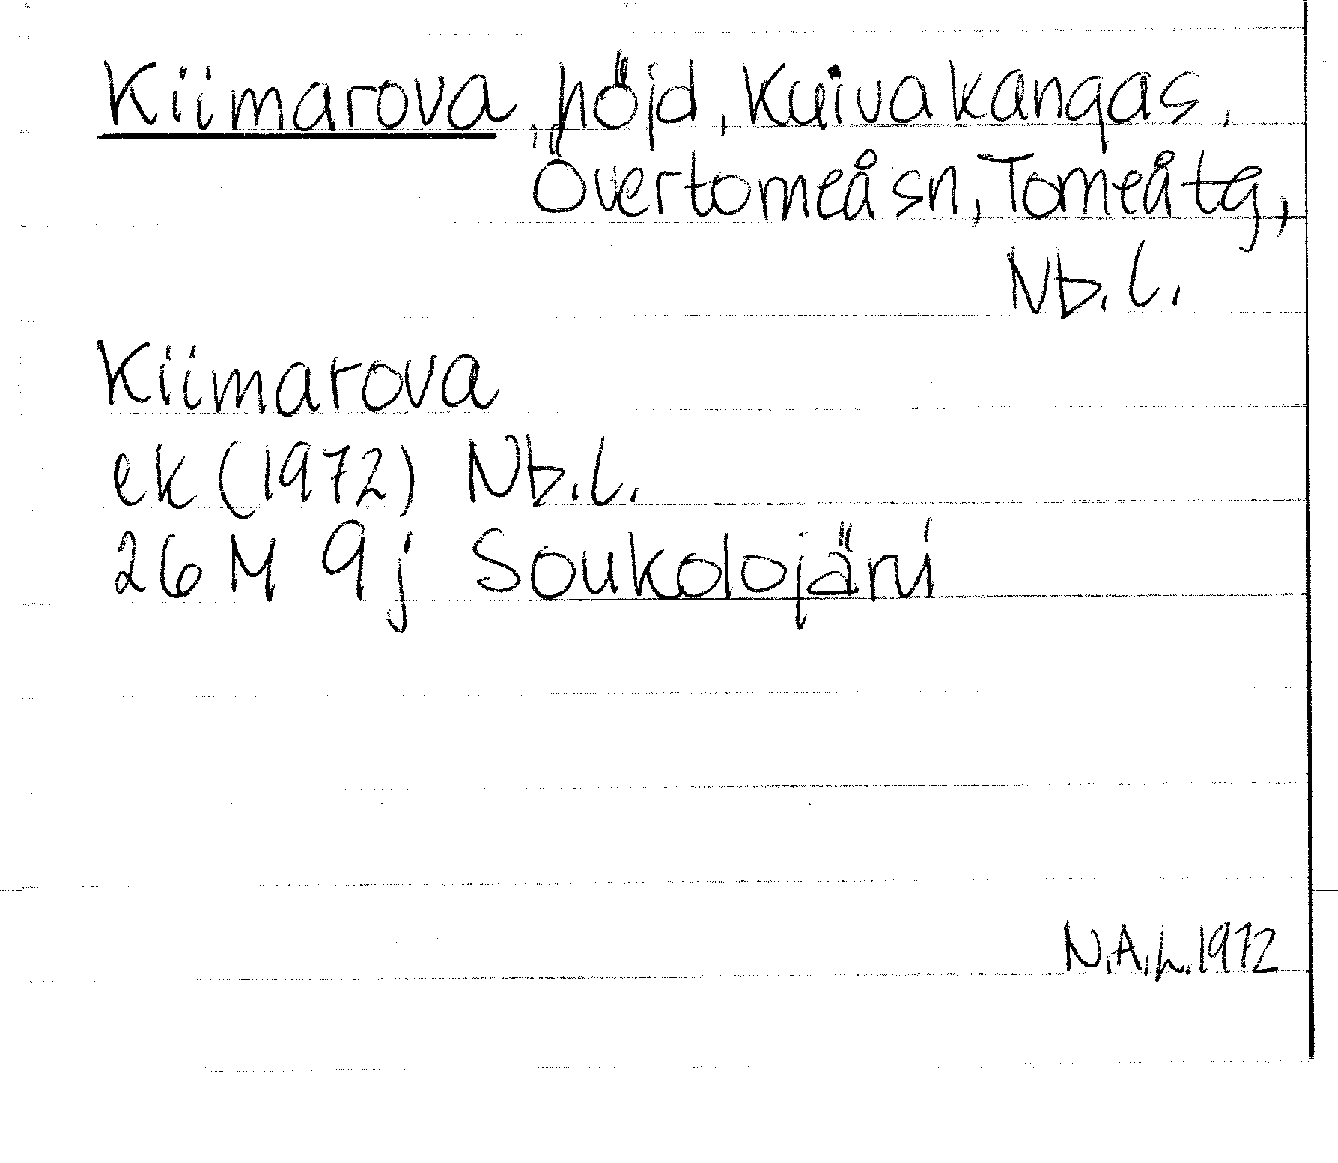 Kiimarova, höjd, Kuivakangas,
Övertorneå sn, Torneå tg,
Nb. l.
Kiimarova
ek (1972) Nb. l.
26 M 9 j Soukolojärvi
N.A.L. 1972